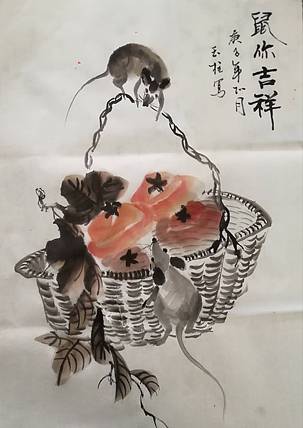 鼠你吉祥
庚子年初月
玉柱写